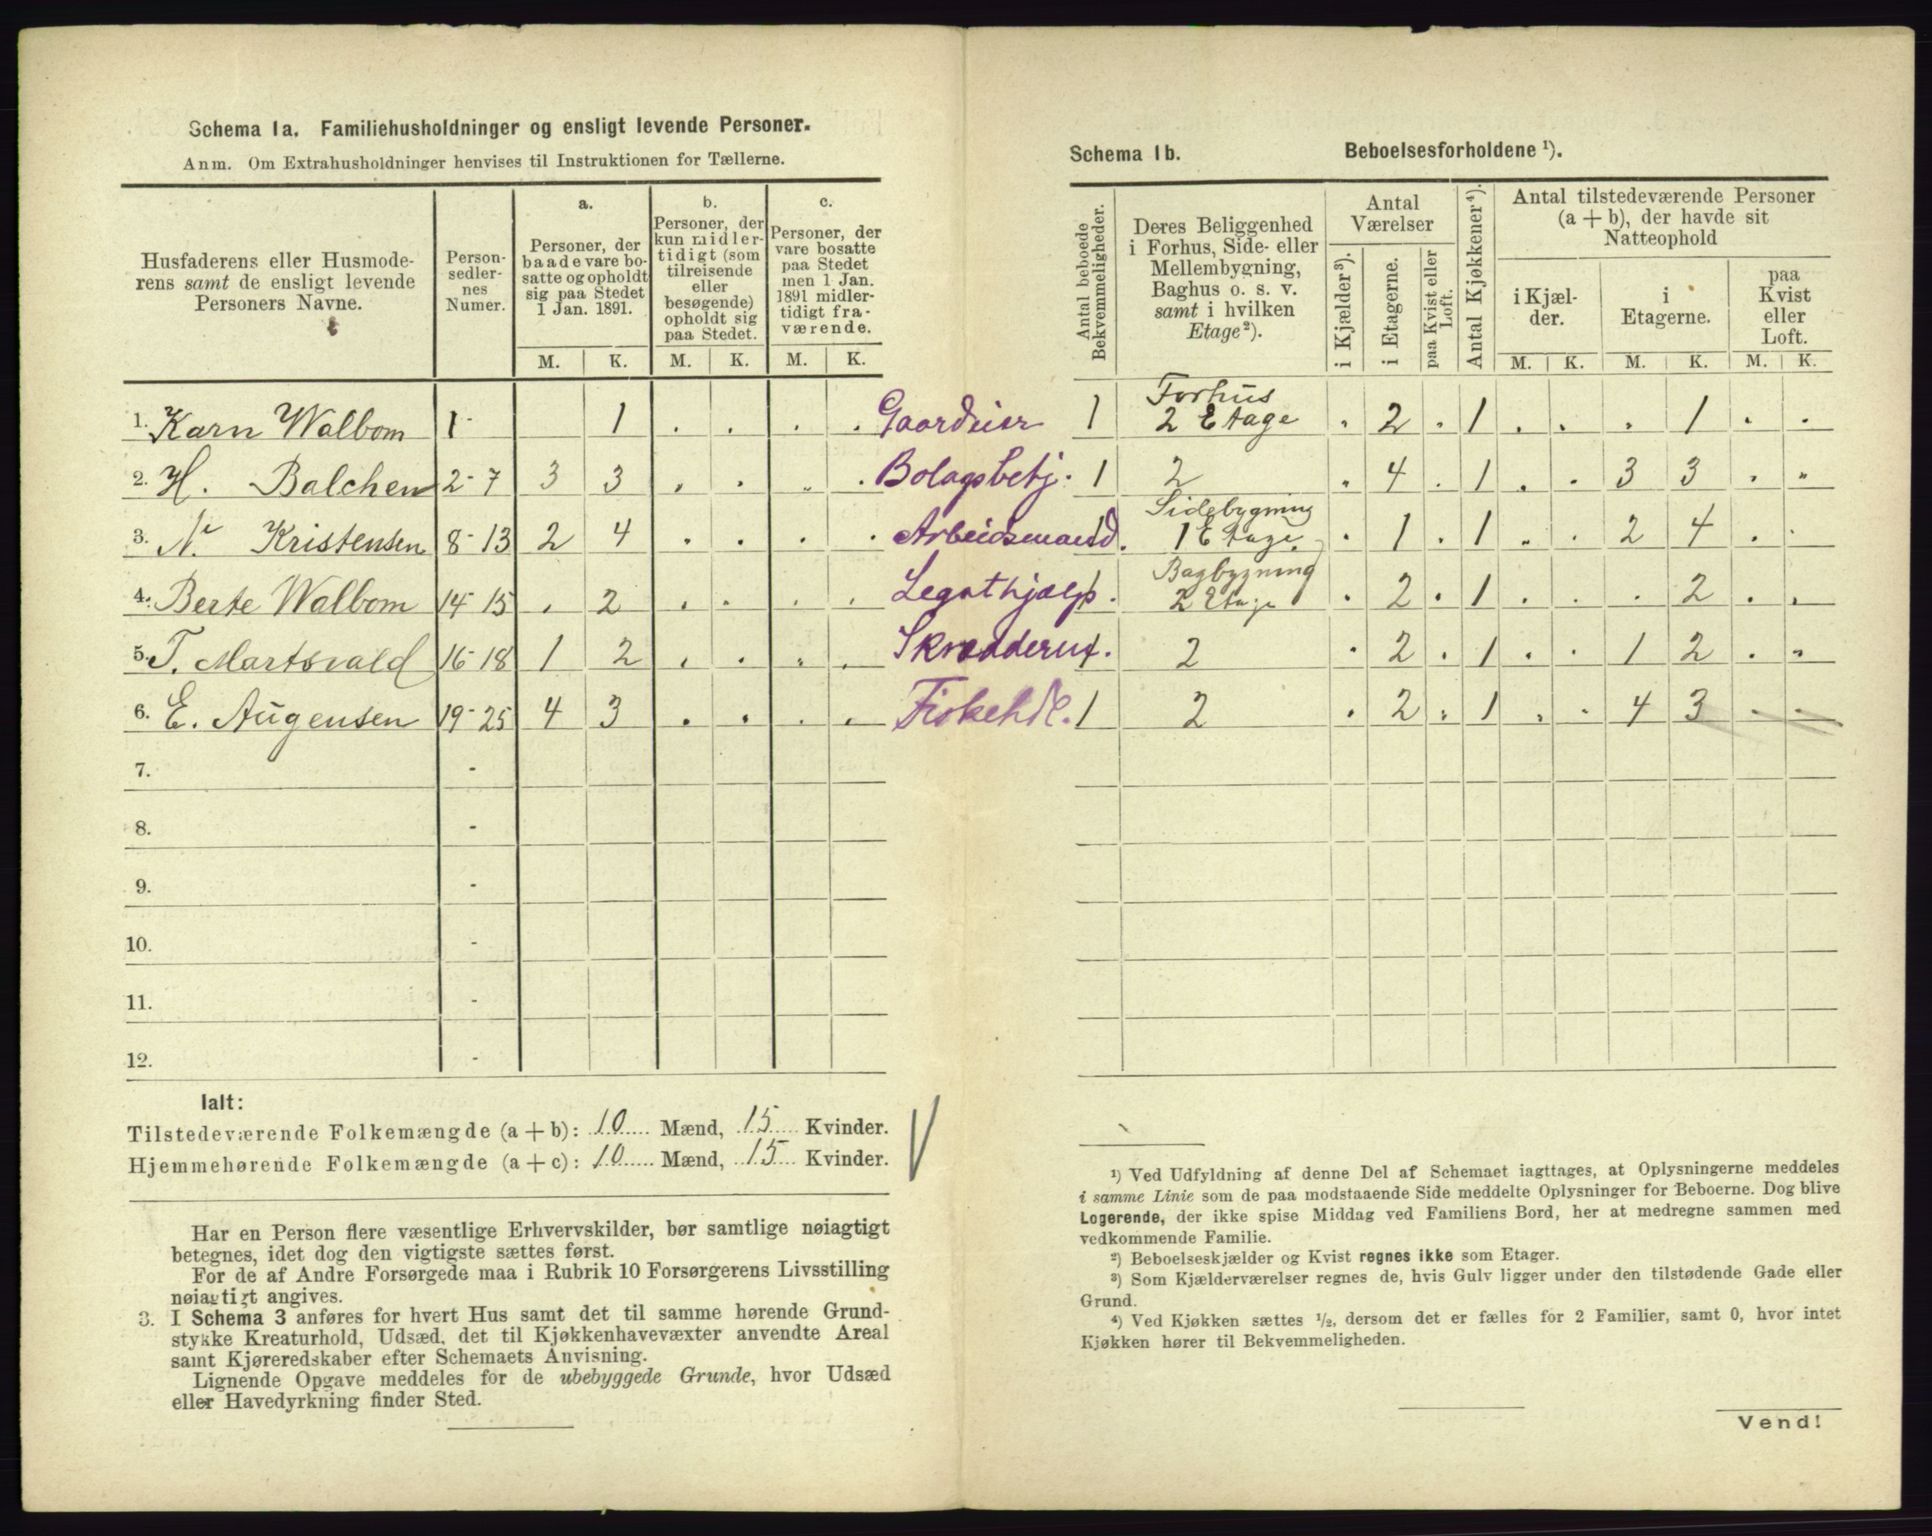 Schema 1a. Familiehusholdninger og ensligt levende Personer.
Anm. Om Extrahusholdninger henvises til Instruktionen for Tællerne.
Husfaderens eller Husmode-
rens samt de ensligt levende
Personers Navne.
Person-
sedler-
nes
Numer.
a.
Personer, der
baade vare bo-
satte og opholdt
sig paa Stedet
1 Jan. 1891.
b.
Personer, der
kun midler-
tidigt (som
tilreisende
eller
besøgende)
opholdt sig
paa Stedet.
c.
Personer, der
vare bosatte
paa Stedet
men 1 Jan.
1891 midler-
tidigt fra-
værende.
M. K. M. K. M. K.
1. Karn Walbom 1- 1 . . . . Gaardeier
2. H. Balchen 2-7 3 3 . . . . Bolagsbetj.
3. N. Kristensen 8-13 2 4 . . . . Arbeidsmand.
4. Berte Walbom 14-15 . 2 . . . . Legathjælp.
5. T. Martsvald 16-18 1 2 . . . . Skrædderut.
6. E. Augensen 19-25 4 3 . . . . Fiskehdl.
7. -
8. -
9. -
10. -
11. -
12. -
Ialt:
Tilstedeværende Folkemængde (a + b): 10 Mænd, 15 Kvinder.
Hjemmehørende Folkemængde (a + c): 10 Mænd, 15 Kvinder.
Har en Person flere væsentlige Erhvervskilder, bør samtlige nøiagtigt
betegnes, idet dog den vigtigste sættes først.
For de af Andre Forsørgede maa i Rubrik 10 Forsørgerens Livsstilling
nøiagtigt angives.
3. I Schema 3 anføres for hvert Hus samt det til samme hørende Grund-
stykke Kreaturhold, Udsæd, det til Kjøkkenhavevæxter anvendte Areal
samt Kjøreredskaber efter Schemaets Anvisning.
Lignende Opgave meddeles for de ubebyggede Grunde, hvor Udsæd
eller Havedyrkning finder Sted.
Schema 1b. Beboelsesforholdene ¹).
Antal beboede
Bekvemmeligheder.
Deres Beliggenhed
i Forhus, Side- eller
Mellembygning,
Baghus o. s. v.
samt i hvilken
Etage²).
Antal
Værelser
i Kjælder³).
i Etagerne.
paa Kvist eller
Loft.
Antal Kjøkkener⁴).
Antal tilstedeværende Personer
(a + b), der havde sit
Natteophold
i Kjæl-
der.
i
Etagerne.
paa
Kvist
eller
Loft.
M. K. M. K. M. K.
Forhus
1 2 Etage . 2 . 1 . . . 1 . .
1 2 . 4 . 1 . . 3 3 . .
Sidebygning
1 1 Etage . 1 . 1 . . 2 4 . .
Bagbygning
1 2 Etage . 2 . 1 . . . 2 . .
1 2 . 2 . 1 . . 1 2 . .
1 2 . 2 . 1 . . 4 3 . .
¹) Ved Udfyldning af denne Del af Schemaet iagttages, at Oplysningerne meddeles
i samme Linie som de paa modstaaende Side meddelte Oplysninger for Beboerne. Dog blive
Logerende, der ikke spise Middag ved Familiens Bord, her at medregne sammen med
vedkommende Familie.
²) Beboelseskjælder og Kvist regnes ikke som Etager.
³) Som Kjælderværelser regnes de, hvis Gulv ligger under den tilstødende Gade eller
Grund.
⁴) Ved Kjøkken sættes ½, dersom det er fælles for 2 Familier, samt 0, hvor intet
Kjøkken hører til Bekvemmeligheden.
Vend!